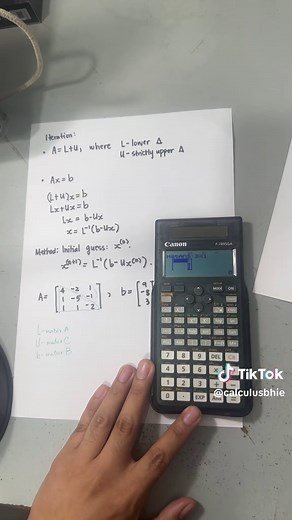 Iteration:
• A = L+U, where L - lower Δ
U - strictly upper Δ
• Ax = b
(L+U)x = b
Lx + Ux = b
Lx = b - Ux
x = L⁻¹(b - Ux)
Method: Initial guess: x⁽⁰⁾
x⁽ⁿ⁺¹⁾ = L⁻¹(b - Ux⁽ⁿ⁾).
A = [4 -2 1
1 -5 -1
1 1 -2] ; b = [9
-8
3
L - matrix A
U - matrix C
b - matrix B
Canon
F-789SGA
DEL CA
7 8 9
4 5 6
1 2 3
0 · EXP Ans =
TikTok
@calculusbhie